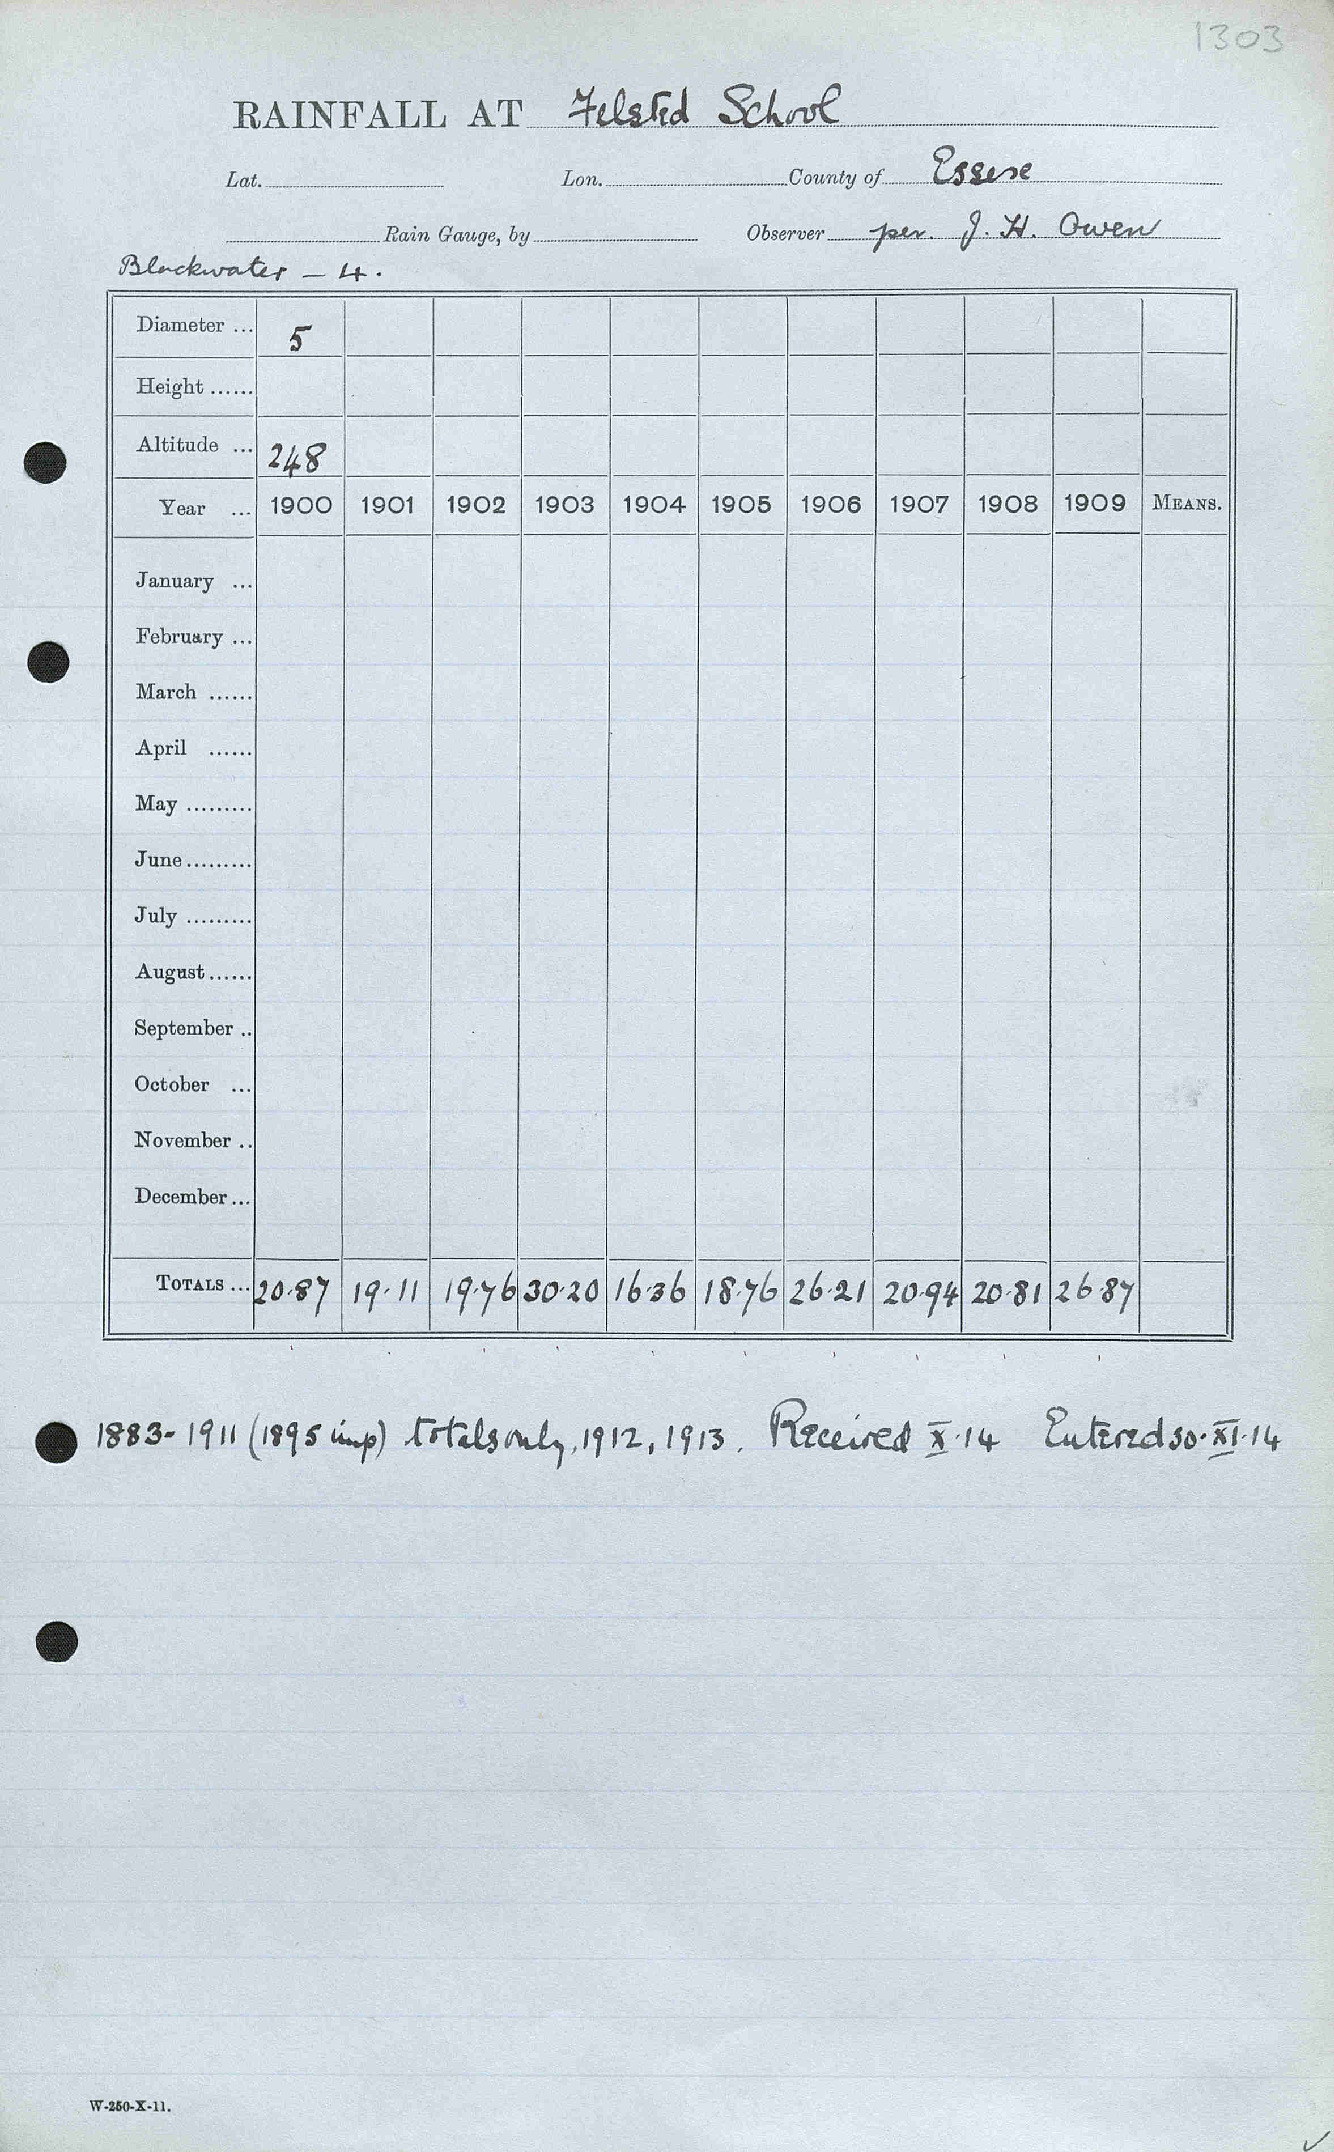 1303
RAINFALL AT Felsted School
Lat. Lon. County of Essex
Rain Gauge, by Observer per. J. H. Owen
Blackwater – 4.
Diameter ... 5
Height ......
Altitude ... 248
Year ... 1900 1901 1902 1903 1904 1905 1906 1907 1908 1909 MEANS.
January ...
February ...
March ......
April ......
May .........
June .........
July .........
August ......
September ..
October ...
November ..
December ...
TOTALS ... 20·87 19·11 19·76 30·20 16·36 18·76 26·21 20·94 20·81 26·87
1883-1911 (1895 imp) totals only, 1912, 1913. Received X·14 Entered 30·XI·14
W-250-X-11.